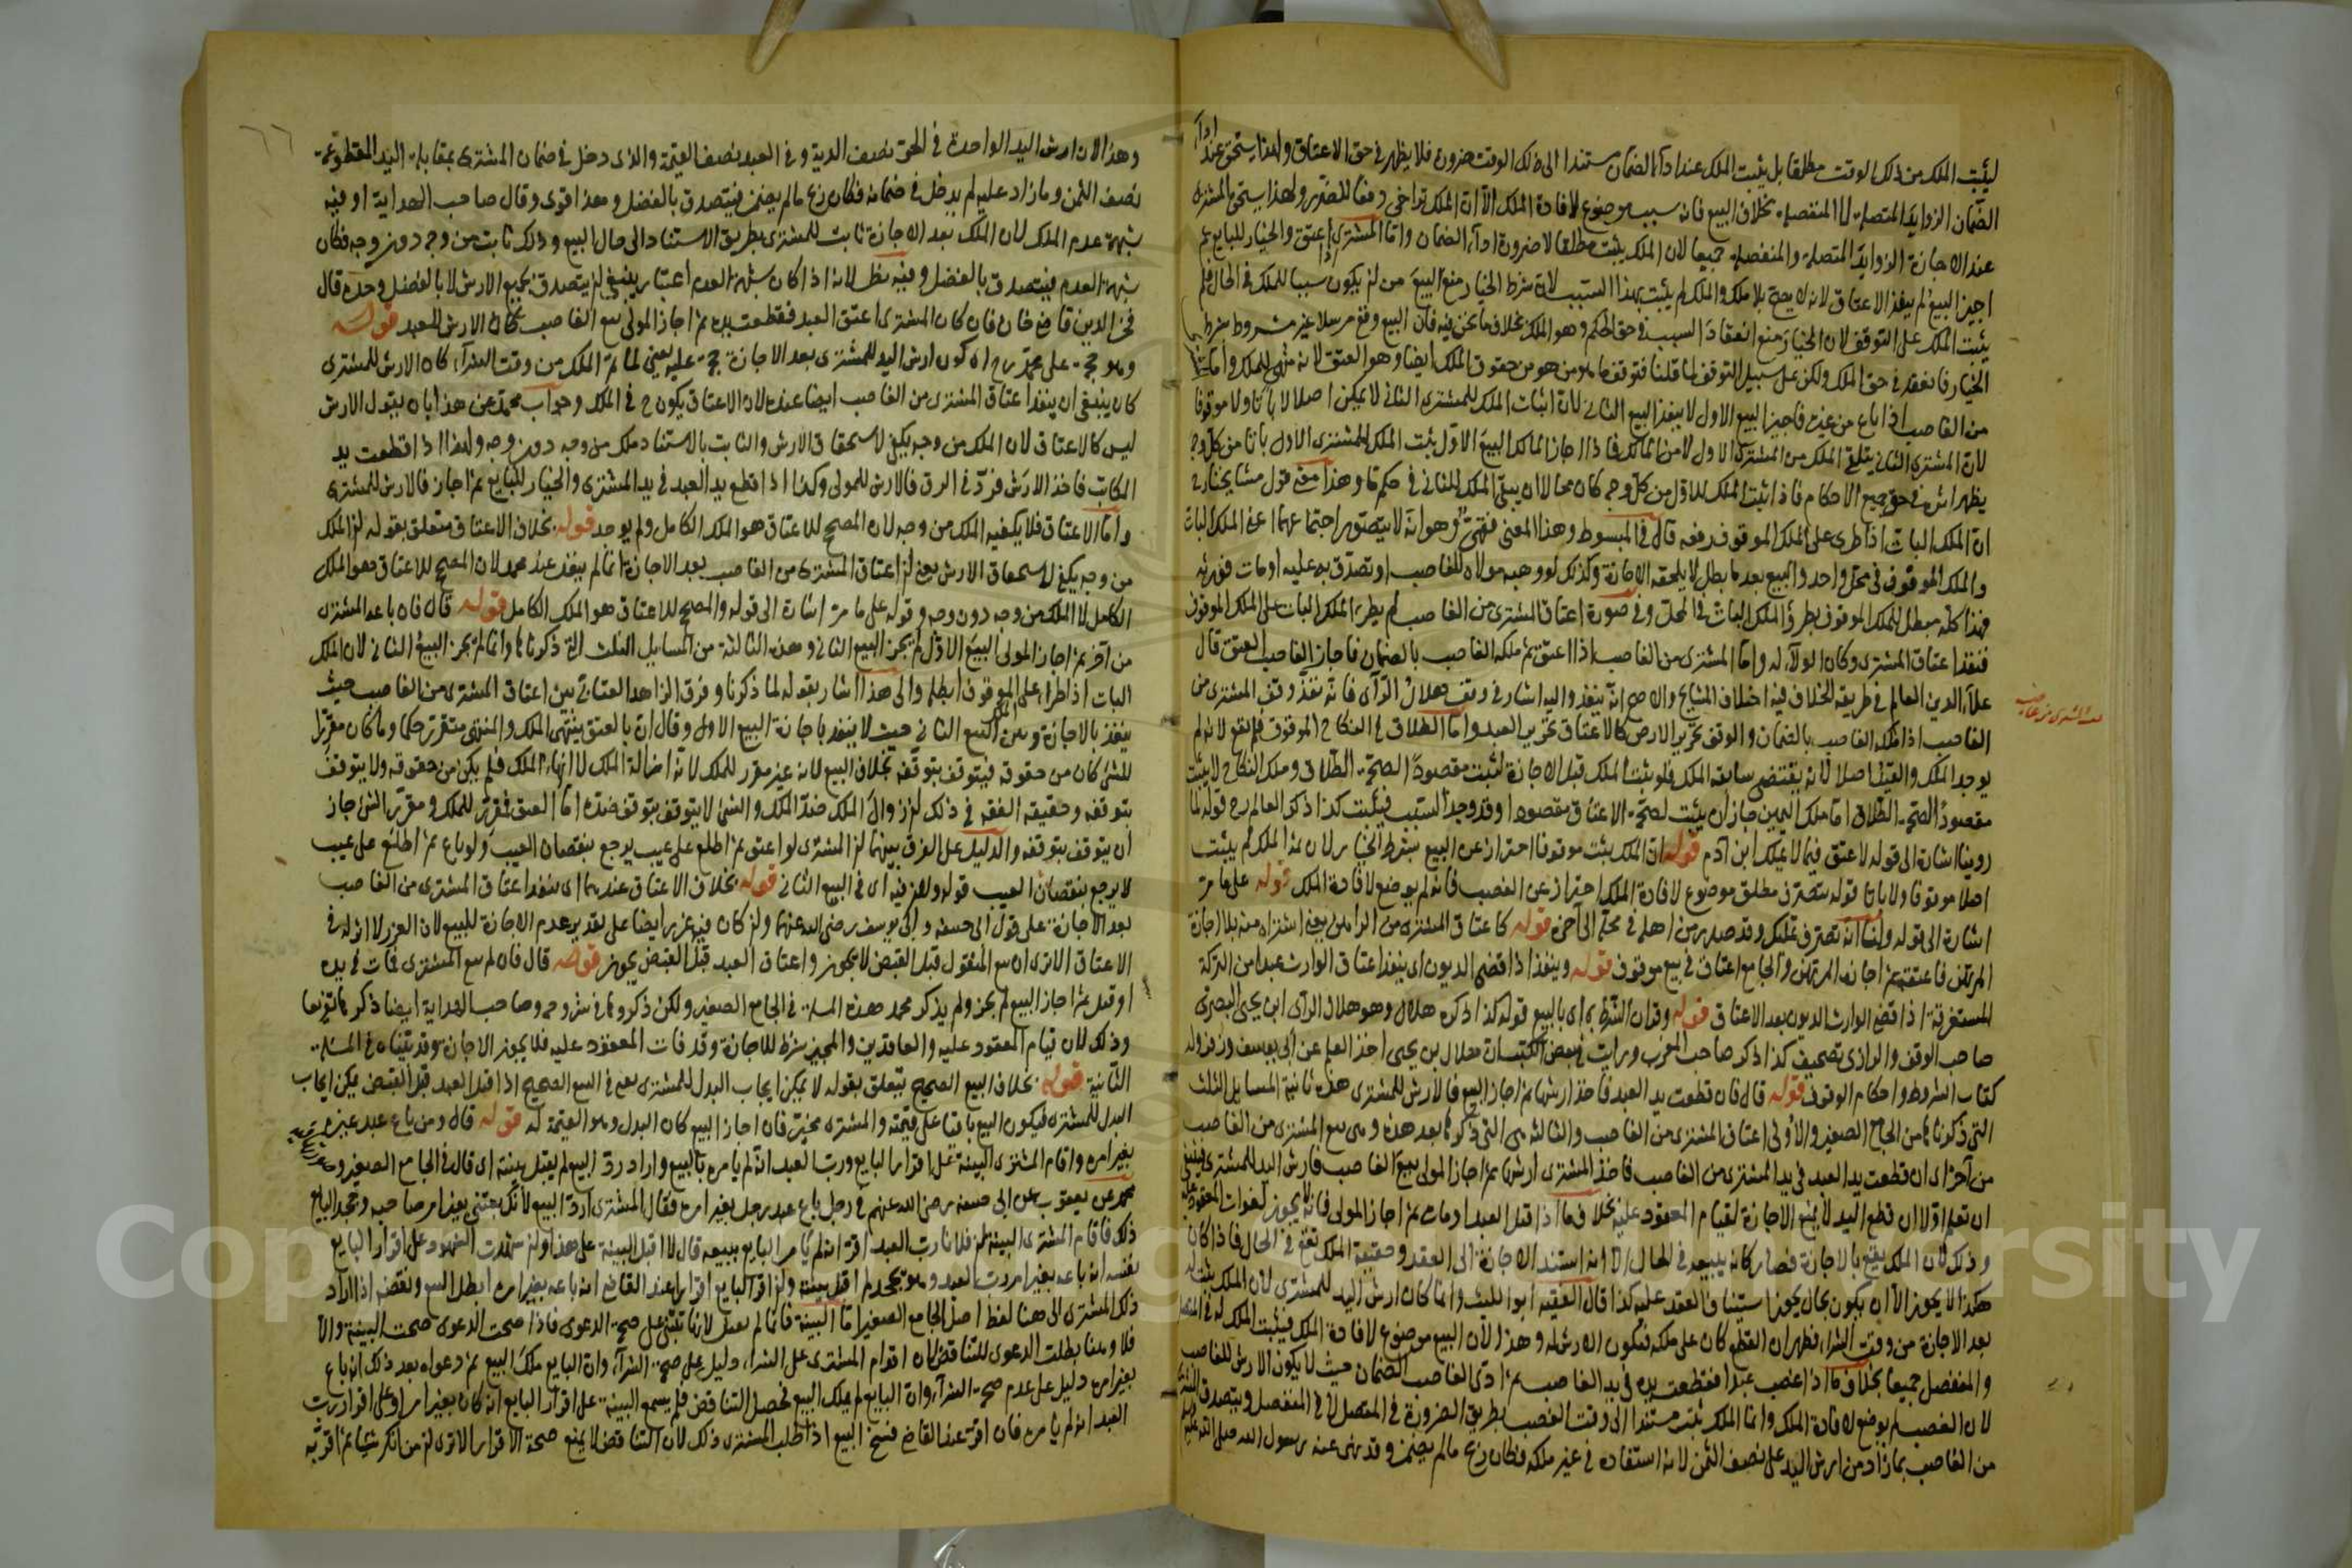 ليثبت الملك من ذلك الوقت مطلقا بل يثبت الملك عند اداء الضمان مستندا الى ذلك الوقت ضرورة فلا يظهر في حق الاعتاق ولهذا يستحق عند اداء
الضمان الزوايد المتصلة لا المنفصلة بخلاف البيع فانه سبب موضوع لافادة الملك الا ان الملك تراخى دفعا للضرر ولهذا يستحق المشترى
عند الاجازة الزوايد المتصلة والمنفصلة جميعا لان الملك يثبت مطلقا لا ضرورة اداء الضمان واما المشترى اذا اعتق والخيار للبايع ثم
اجيز البيع لم ينفذ الاعتاق لانه لا يصح بلا ملك والملك لم يثبت بهذا السبب لان شرط الخيار منع البيع من ان يكون سببا للملك في الحال فلم
يثبت الملك على التوقف لان الخيار منع انعقاد السبب في حق الحكم وهو الملك بخلاف ما نحن فيه فان البيع وقع مرسلا غير مشروط بشرط
الخيار فانعقد في حق الملك ولكن على سبيل التوقف لما قلنا فتوقف ما هو من حقوق الملك ايضا وهو العتق لانه منهى للملك واما المشترى
من الغاصب اذا باع من غيره فاجيز البيع الاول لا ينفذ البيع الثانى لان اثبات الملك للمشترى الثانى لا يمكن اصلا لا باتا ولا موقوفا
لان المشترى الثانى يتلقى الملك من المشترى الاول لا من المالك فاذا اجاز المالك البيع الاول يثبت الملك للمشترى الاول باتا من كل وجه
يظهر اثره في حق جميع الاحكام فاذا ثبت الملك للاول من كل وجه كان محالا ان يبقى الملك للثانى في حكم ما وهذا معنى قول مشايخنا رح
ان الملك البات اذا طرى على الملك الموقوف رفعه قال في المبسوط وهذا المعنى فقهى وهو انه لا يتصور اجتماعهما اعنى الملك البات
والملك الموقوف في محل واحد والبيع بعد ما بطل لا يلحقه الاجازة وكذلك لو وهبه مولاه للغاصب او تصدق به عليه او مات فورثه
فهذا كله مبطل للملك الموقوف بطرو الملك البات في المحل وفي صورة اعتاق المشترى من الغاصب لم يطرء الملك البات على الملك الموقوف
فنفذ اعتاق المشترى وكان الولاء له واما المشترى من الغاصب اذا اعتق ثم ملكه الغاصب بالضمان فاجاز الغاصب العتق قال
علاء الدين العالم في طريقة الخلاف فيه اختلاف المشايخ والاصح انه ينفذ واليه اشار في وقف هلال الرأى فانه نفذ وقف المشترى من
الغاصب اذا ملكه الغاصب بالضمان والوقف تحرير الارض كالاعتاق تحرير العبد واما الطلاق في النكاح الموقوف فلم يقع لانه لم
يوجد الملك والقيد اصلا لانه يقتضى سابقة الملك فلو يثبت الملك قبل الاجازة لثبت مقصودا لصحة الطلاق وملك النكاح لا يثبت
مقصودا لصحة الطلاق اما ملك اليمين جاز ان يثبت لصحة الاعتاق مقصودا وقد وجد السبب فيثبت كذا ذكر العالم رح قوله لما
روينا اشارة الى قوله لا عتق فيما لا يملك ابن ادم قوله ان الملك يثبت موقوفا احتراز عن البيع بشرط الخيار لان ثمة الملك لم يثبت
اصلا موقوفا ولا باتا قوله بتصرف مطلق موضوع لافادة الملك احتراز عن الغصب فانه لم يوضع لافادة الملك قوله على ما مر
اشارة الى قوله ولنا انه تصرف تمليك وقد صدر من اهله في محله الى اخره قوله كاعتاق المشترى من الراهن يعنى اشتراه منه بلا اجازة
المرتهن فاعتقه ثم اجازه المرتهن والجامع اعتاق في بيع موقوف قوله وينفذ اذا قضى الديون اى ينفذ اعتاق الوارث عبدا من التركة
المستغرقة اذا قضى الوارث الديون بعد الاعتاق قوله وقران الشرط به اى بالبيع قوله كذا ذكره هلال وهو هلال الراى ابن يحيى البصرى
صاحب الوقف والرازى تصحيف كذا ذكر صاحب المغرب ورايت في بعض الكتب انه هلال بن يحيى اخذ العلم عن ابى يوسف وزفر وله
كتاب الشروط واحكام الوقوف قوله قال فان قطعت يد العبد فاخذ ارشها ثم اجاز البيع فالارش للمشترى هذه ثانية المسايل الثلث
التى ذكرناها من الجامع الصغير والاولى اعتاق المشترى من الغاصب والثالثة هى التى ذكرها بعد هذه وهى بيع المشترى من الغاصب
من آخر اى ان قطعت يد العبد في يد المشترى من الغاصب فاخذ المشترى ارشها ثم اجاز المولى بيع الغاصب فارش اليد للمشترى فينبغى
ان تعلم اولا ان قطع اليد لا يمنع الاجازة لقيام المعقود عليه بخلاف ما اذا قتل العبد او مات ثم اجاز المولى فانه لا يجوز لفوات المعقود عليه
وذلك لان الملك يقع بالاجازة فصار كانه يبيعه في الحال الا انه استند الاجازة الى العقد وحقيقة الملك تقع في الحال فاذا كان
هكذا لا يجوز الا ان يكون بحال يجوز استيناف العقد عليه كذا قال الفقيه ابو الليث وانما كان ارش اليد للمشترى لان الملك يثبت له
بعد الاجازة من وقت الشراء فظهر ان القطع كان على ملكه فيكون الارش له وهذا لان البيع موضوع لافادة الملك فيثبت الملك له في المتصل
والمنفصل جميعا بخلاف ما اذا غصب عبدا فقطعت يده في يد الغاصب ثم ادى الغاصب الضمان حيث لا يكون الارش للغاصب
لان الغصب لم يوضع لافادة الملك وانما الملك يثبت مستندا الى وقت الغصب بطريق الضرورة في المتصل لا في المنفصل ويتصدق المشترى
من الغاصب بما زاد من ارش اليد على نصف الثمن لانه استفاده في غير ملكه فكان ربح ما لم يضمن وقد نهى عنه رسول الله صلى الله عليه
المشترى من غاصب
٦٦
وهذا لان ارش اليد الواحدة في الحر نصف الدية وفي العبد نصف القيمة والذى دخل في ضمان المشترى بمقابلة اليد المقطوعة
نصف الثمن وما زاد عليه لم يدخل في ضمانه فكان ربح ما لم يضمن فيتصدق بالفضل وهذا اقوى وقال صاحب الهداية او فيه
شبهة عدم الملك لان الملك بعد الاجازة ثابت للمشترى بطريق الاستناد الى حال البيع وذلك ثابت من وجه دون وجه فكان
شبهة العدم فيتصدق بالفضل وفيه نظر لانه اذا كان شبهة العدم اعتبار ينبغى ان يتصدق بجميع الارش لا بالفضل وحده قال
فخر الدين قاضى خان فان كان المشترى اعتق العبد فقطعت يده ثم اجاز المولى بيع الغاصب كان الارش للعبد قوله
وهو حجة على محمد رح اى كون ارش اليد للمشترى بعد الاجازة حجة عليه يعنى لما تم الملك من وقت الشراء كان الارش للمشترى
كان ينبغى ان ينفذ اعتاق المشترى من الغاصب ايضا عنده لان الاعتاق يكون ح في الملك وجواب محمد عن هذا بان يبدل الارش
ليس كالاعتاق لان الملك من وجه يكفى لاستحقاق الارش والثابت بالاستناد ملك من وجه دون وجه ولهذا اذا قطعت يد
المكاتب فاخذ الارش فرد في الرق فالارش للمولى وكذا اذا قطع يد العبد في يد المشترى والخيار للبايع ثم اجاز فالارش للمشترى
واما الاعتاق فلا يكفيه الملك من وجه لان المصحح للاعتاق هو الملك الكامل ولم يوجد قوله بخلاف الاعتاق متعلق بقوله ان الملك
من وجه يكفى لاستحقاق الارش يعنى ان اعتاق المشترى من الغاصب بعد الاجازة انما لم ينفذ عند محمد لان المصحح للاعتاق هو الملك
الكامل لا الملك من وجه دون وجه وقوله على ما مر اشارة الى قوله والمصحح للاعتاق هو الملك الكامل قوله قال فان باعه المشترى
من آخر ثم اجاز المولى البيع الاول لم يجز البيع الثانى وهذه الثالثة من المسايل الثلث التى ذكرناها وانما لم يجز البيع الثانى لان الملك
البات اذا طرا على الموقوف ابطله والى هذا اشار بقوله لما ذكرنا وفرق الزاهد العتابى بين اعتاق المشترى من الغاصب حيث
ينفذ بالاجازة وبين البيع الثانى حيث لا ينفذ باجازة البيع الاول وقال ان بالعتق ينتهى الملك والمنتهى متقرر حكما وما كان مقررا
للشئ كان من حقوقه فيتوقف بتوقفه بخلاف البيع لانه غير مقرر للملك لانه ازالة الملك لا انهاء الملك فلم يكن من حقوقه ولا يتوقف
بتوقفه وحقيقة الفقه في ذلك ان زوال الملك ضد الملك والشئ لا يتوقف بتوقف ضده اما العتق فمقرر للملك ومقرر الشئ جاز
ان يتوقف بتوقفه والدليل على الفرق بينهما ان المشترى لو اعتق ثم اطلع على عيب يرجع بنقصان العيب ولو باع ثم اطلع على عيب
لا يرجع بنقصان العيب قوله ولان فيه اى في البيع الثانى قوله بخلاف الاعتاق عندهما اى ينفذ اعتاق المشترى من الغاصب
بعد الاجازة على قول ابى حنيفة وابى يوسف رضى الله عنهما وان كان فيه غرر ايضا على تقدير عدم الاجازة للبيع لان الغرر لا اثر له في
الاعتاق الا ترى ان بيع المنقول قبل القبض لا يجوز واعتاق العبد قبل القبض يجوز قوله قال فان لم يبع المشترى فمات في يده
او قتل ثم اجاز البيع لم يجز ولم يذكر محمد هذه المسئلة في الجامع الصغير ولكن ذكروها في شروحه وصاحب الهداية ايضا ذكرها تفريعا
وذلك لان قيام المعقود عليه والعاقدين والمجيز شرط للاجازة وقد فات المعقود عليه فلا يجوز الاجازة وقد بيناه في المسئلة
الثانية قوله بخلاف البيع الصحيح يتعلق بقوله لا يمكن ايجاب البدل للمشترى يعنى في البيع الصحيح اذا قتل العبد قبل القبض يمكن ايجاب
البدل للمشترى فيكون البيع باقيا على قيمته والمشترى مخير فان اجاز البيع كان البدل وهو القيمة له قوله قال ومن باع عبد غيره
بغير امره واقام المشترى البينة على اقرار البايع ورب العبد انه لم يامره بالبيع واراد رد البيع لم يقبل بينته اى قال في الجامع الصغير
محمد عن يعقوب عن ابى حنيفة رضى الله عنهم في رجل باع عبد رجل بغير امره فقال المشترى ارد البيع لانك بعتنى بغير امر صاحبه وجحد البايع
ذلك فاقام المشترى البينة ان فلانا رب العبد اقر انه لم يامر البايع ببيعه قال لا اقبل البينة على هذا وان شهدت الشهود على اقرار البايع
نفسه انه باعه بغير امر رب العبد وهو يجحد لم اقبل بينته وان اقر البايع اقرارا عند القاضى انه باعه بغير امره ابطل البيع ونقضه اذا اراد
ذلك المشترى الى هنا لفظ اصل الجامع الصغير اما البينة فانما لم تقبل لانها تبتنى على صحة الدعوى فاذا صحت الدعوى صحت البينة والا
فلا وهنا بطلت الدعوى للتناقض لان اقدام المشترى على الشراء دليل على صحة الشراء وان البايع ملك البيع ثم دعواه بعد ذلك انه باع
بغير امره دليل على عدم صحة الشراء وان البايع لم يملك البيع فحصل التناقض فلم يسمع البينة على اقرار البايع انه كان بغير امر او على اقرار رب
العبد انه لم يامره فان اقر عند القاضى فسخ البيع اذا طلب المشترى ذلك لان التناقض لا يمنع صحة الاقرار الا ترى ان من انكر شيئا ثم اقر به
Copyright © King Saud University